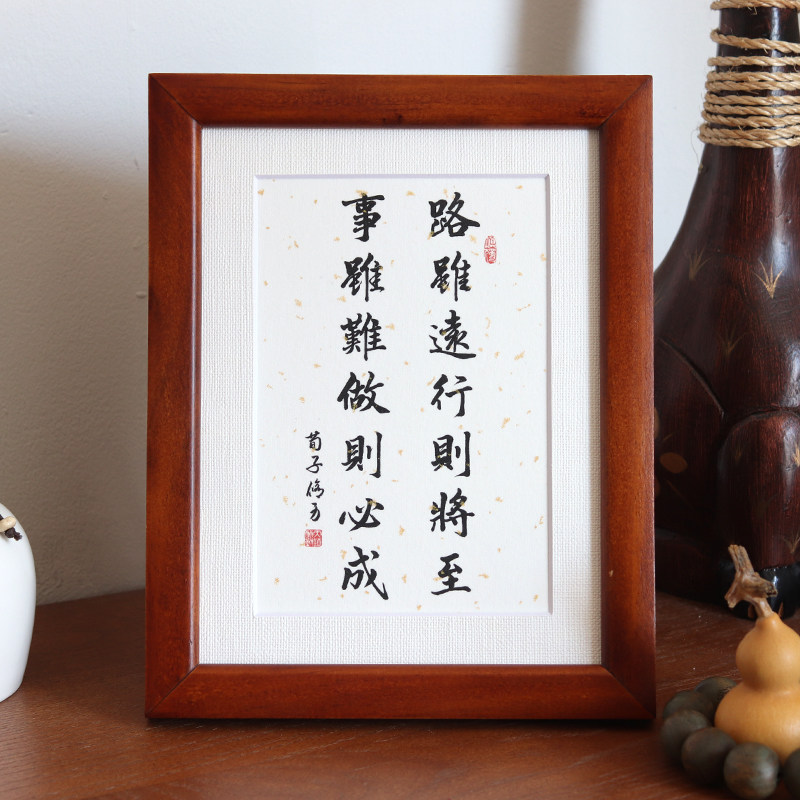 路雖遠行則將至
事雖難做則必成
荀子脩身